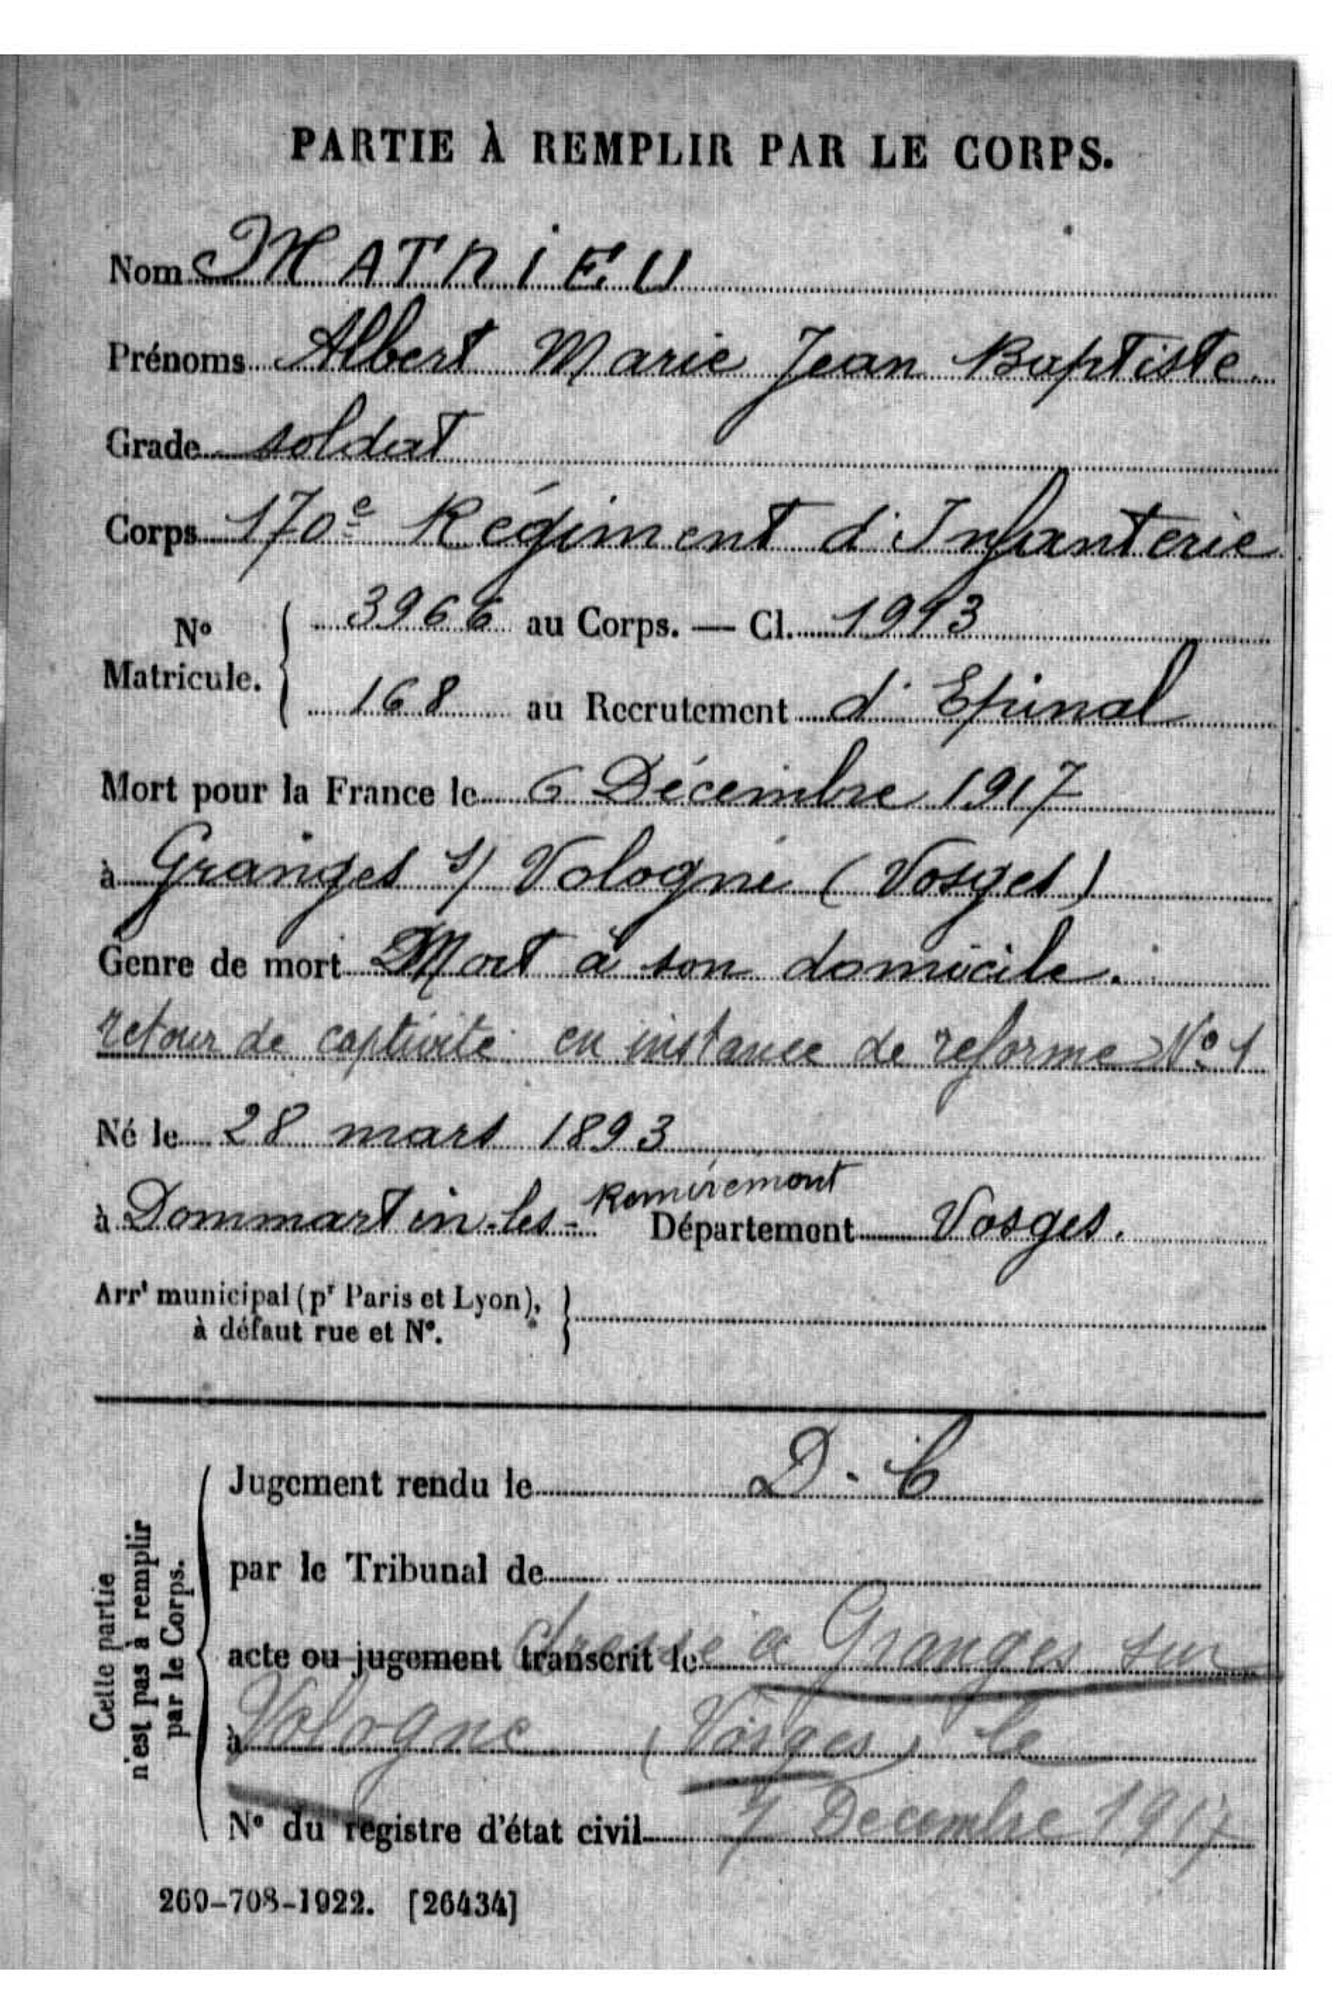 PARTIE À REMPLIR PAR LE CORPS.
Nom MATHIEU
Prénoms Albert Marie Jean Baptiste.
Grade soldat
Corps 170e Régiment d'Infanterie
No Matricule. { 3966 au Corps. — Cl. 1913
168 au Recrutement d'Epinal
Mort pour la France le 6 Décembre 1917
à Granges s/ Vologne (Vosges)
Genre de mort Mort à son domicile.
retour de captivité en instance de reforme No 1
Né le 28 mars 1893
à Dommartin-les-Remiremont Département Vosges.
Arrt municipal (pr Paris et Lyon), }
à défaut rue et No.
Cette partie
n'est pas à remplir
par le Corps.
Jugement rendu le D. C
par le Tribunal de
acte ou jugement transcrit le dressé à Granges sur
à Vologne (Vosges) le
No du registre d'état civil 7 Decembre 1917
269-708-1922. [26434]